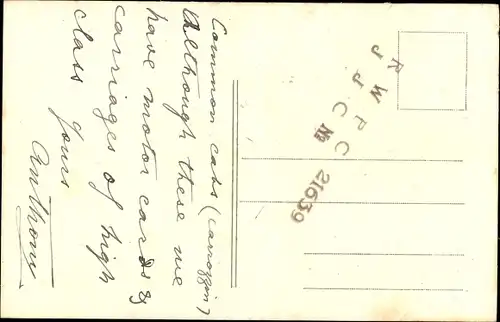 Common cabs (carrozzin)
Although these we
have motor cards &
carriages of high
class Yours
Anthony
R W P C
J J C № 21639